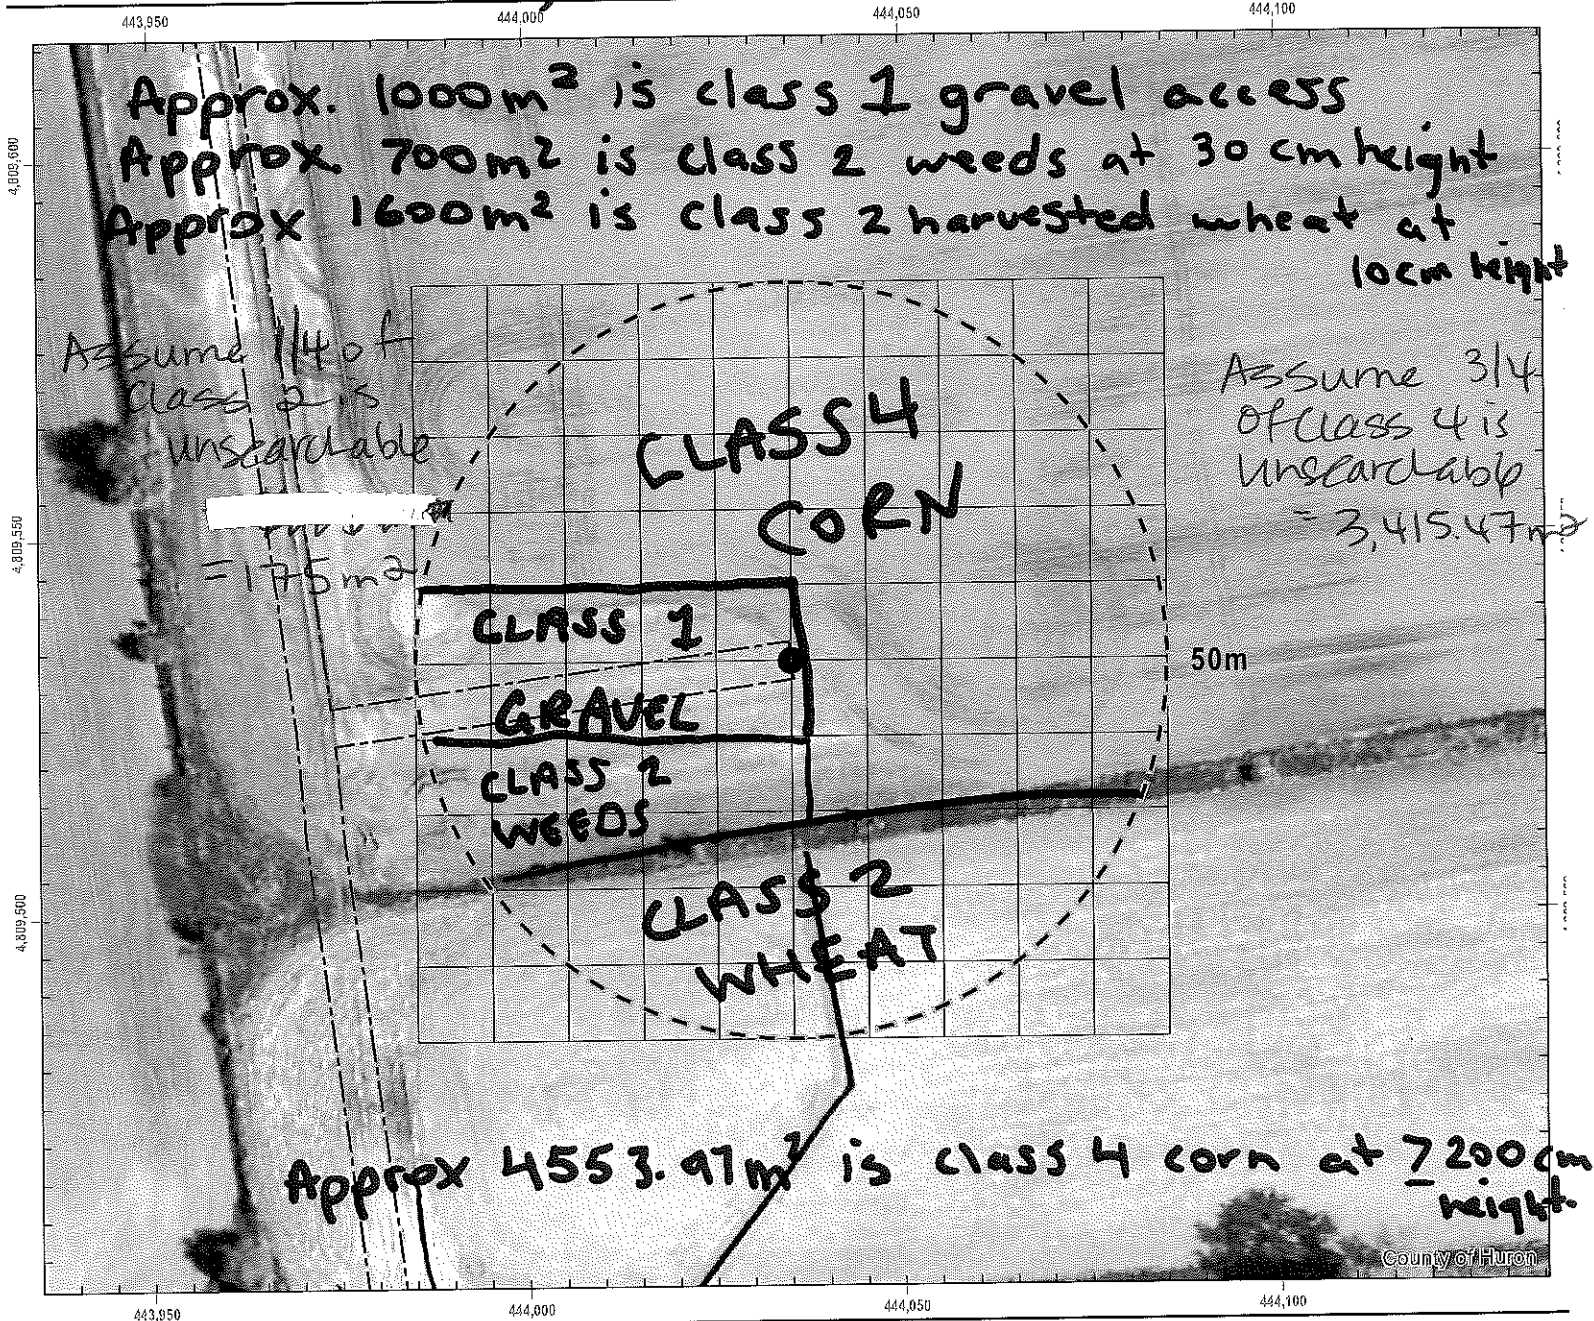 443,950
444,000
444,050
444,100
Approx. 1000m² is class 1 gravel access
Approx. 700m² is class 2 weeds at 30 cm height
Approx 1600m² is class 2 harvested wheat at
10cm height
4,809,600
Assume 1/4 of
Class 2 is
unsearchable
= 175m²
Assume 3/4
of Class 4 is
unsearchable
= 3,415.47m²
CLASS 4
CORN
4,809,550
CLASS 1
GRAVEL
50m
CLASS 2
WEEDS
4,809,500
CLASS 2
WHEAT
Approx 4553.97m² is class 4 corn at ≥200cm
height.
County of Huron
443,950
444,000
444,050
444,100